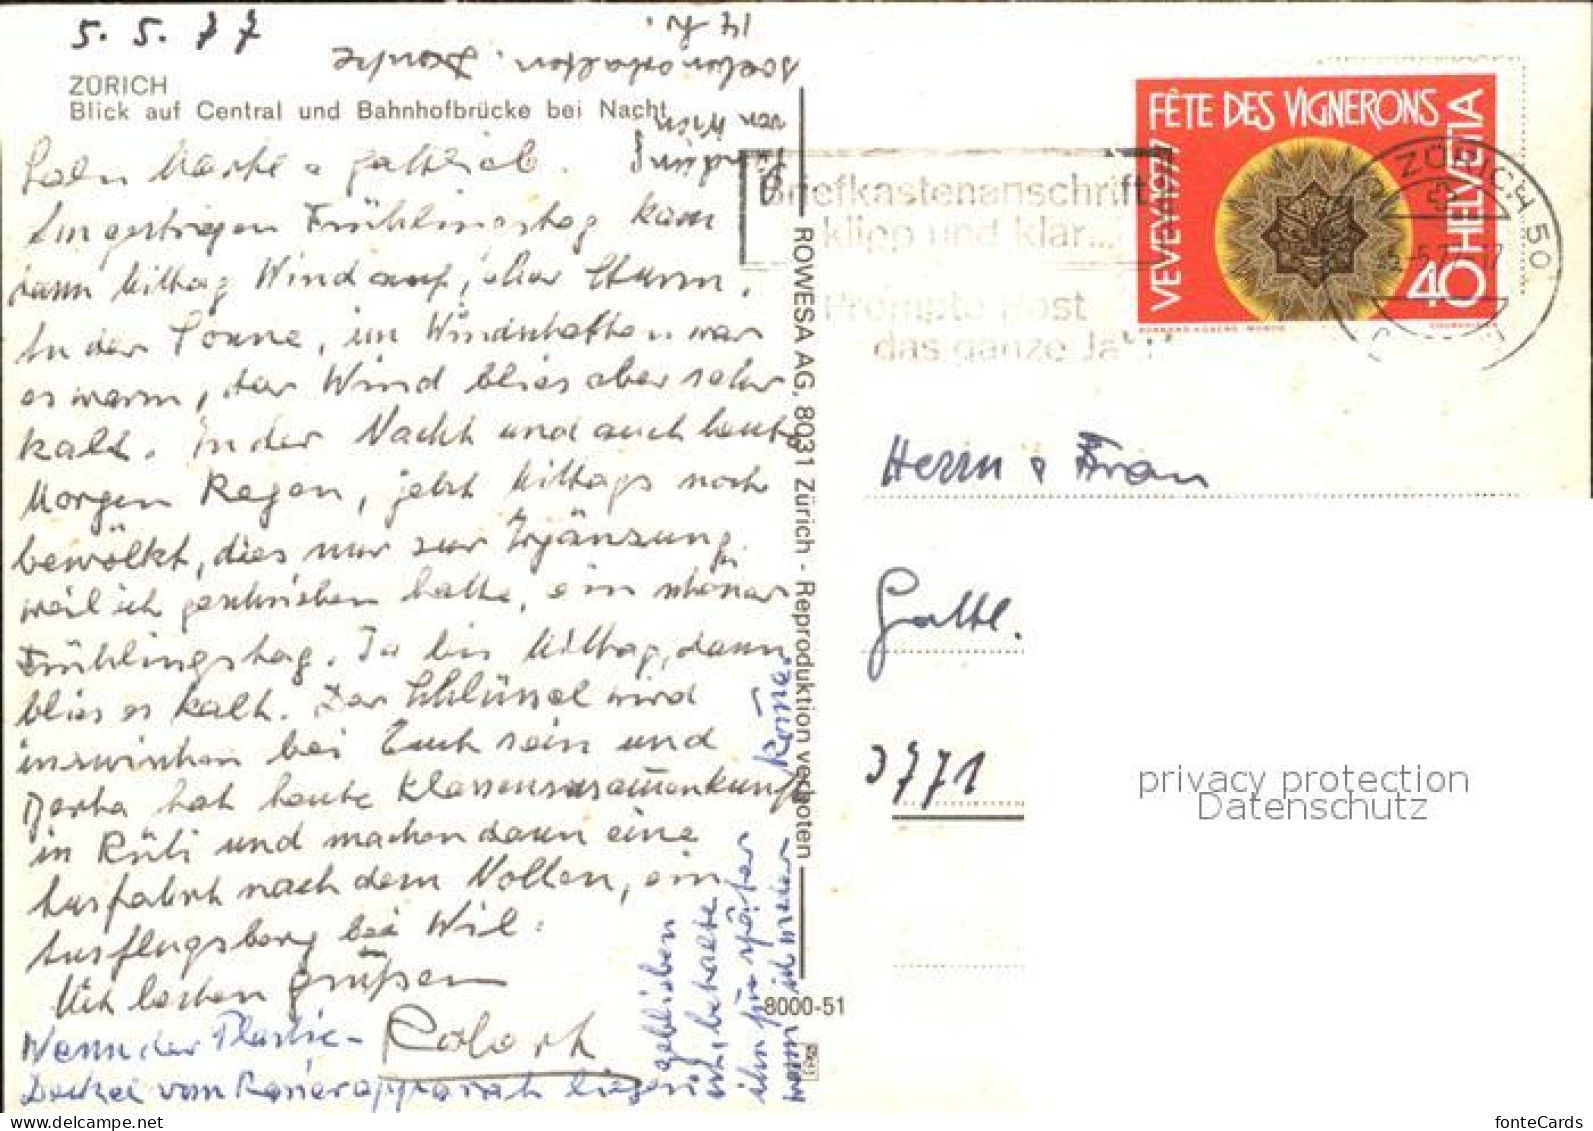 5. 5. 77
ZÜRICH
Blick auf Central und Bahnhofbrücke bei Nacht
am gestrigen Frühlingstag kam
dann Mittag Wind auf, eher Sturm.
In der Sonne, im Windschatten war
es warm, der Wind blies aber sehr
kalt. In der Nacht und auch heute
Morgen Regen, jetzt Mittags noch
bewölkt, dies nur zur Ergänzung,
weil ich geschrieben hatte, ein schöner
Frühlingstag. Ja bis Mittag, dann
blies es kalt. Der Schlüssel wird
inzwischen bei Euch sein und
hat heute Klassenzusammenkunft
in Rüti und machen dann eine
Ausfahrt nach dem Nollen, ein
Ausflugsberg bei Wil.
Mit besten Grüßen
Robert
Wenn der Plastic-
Deckel vom Rasierapparat liegen
geblieben
ist, behaltet
ihn für später
wenn ich wieder komme.
Sendung
von Wien
schon erhalten. Danke
ROWESA AG, 8031 Zürich - Reproduktion verboten
8000-51
Briefkastenanschrift
klipp und klar...
Prompte Post
das ganze Jahr
FÊTE DES VIGNERONS
VEVEY 1977
HELVETIA
40
ZÜRICH 50
Herrn & Frau
3771
privacy protection
Datenschutz
fonteCards